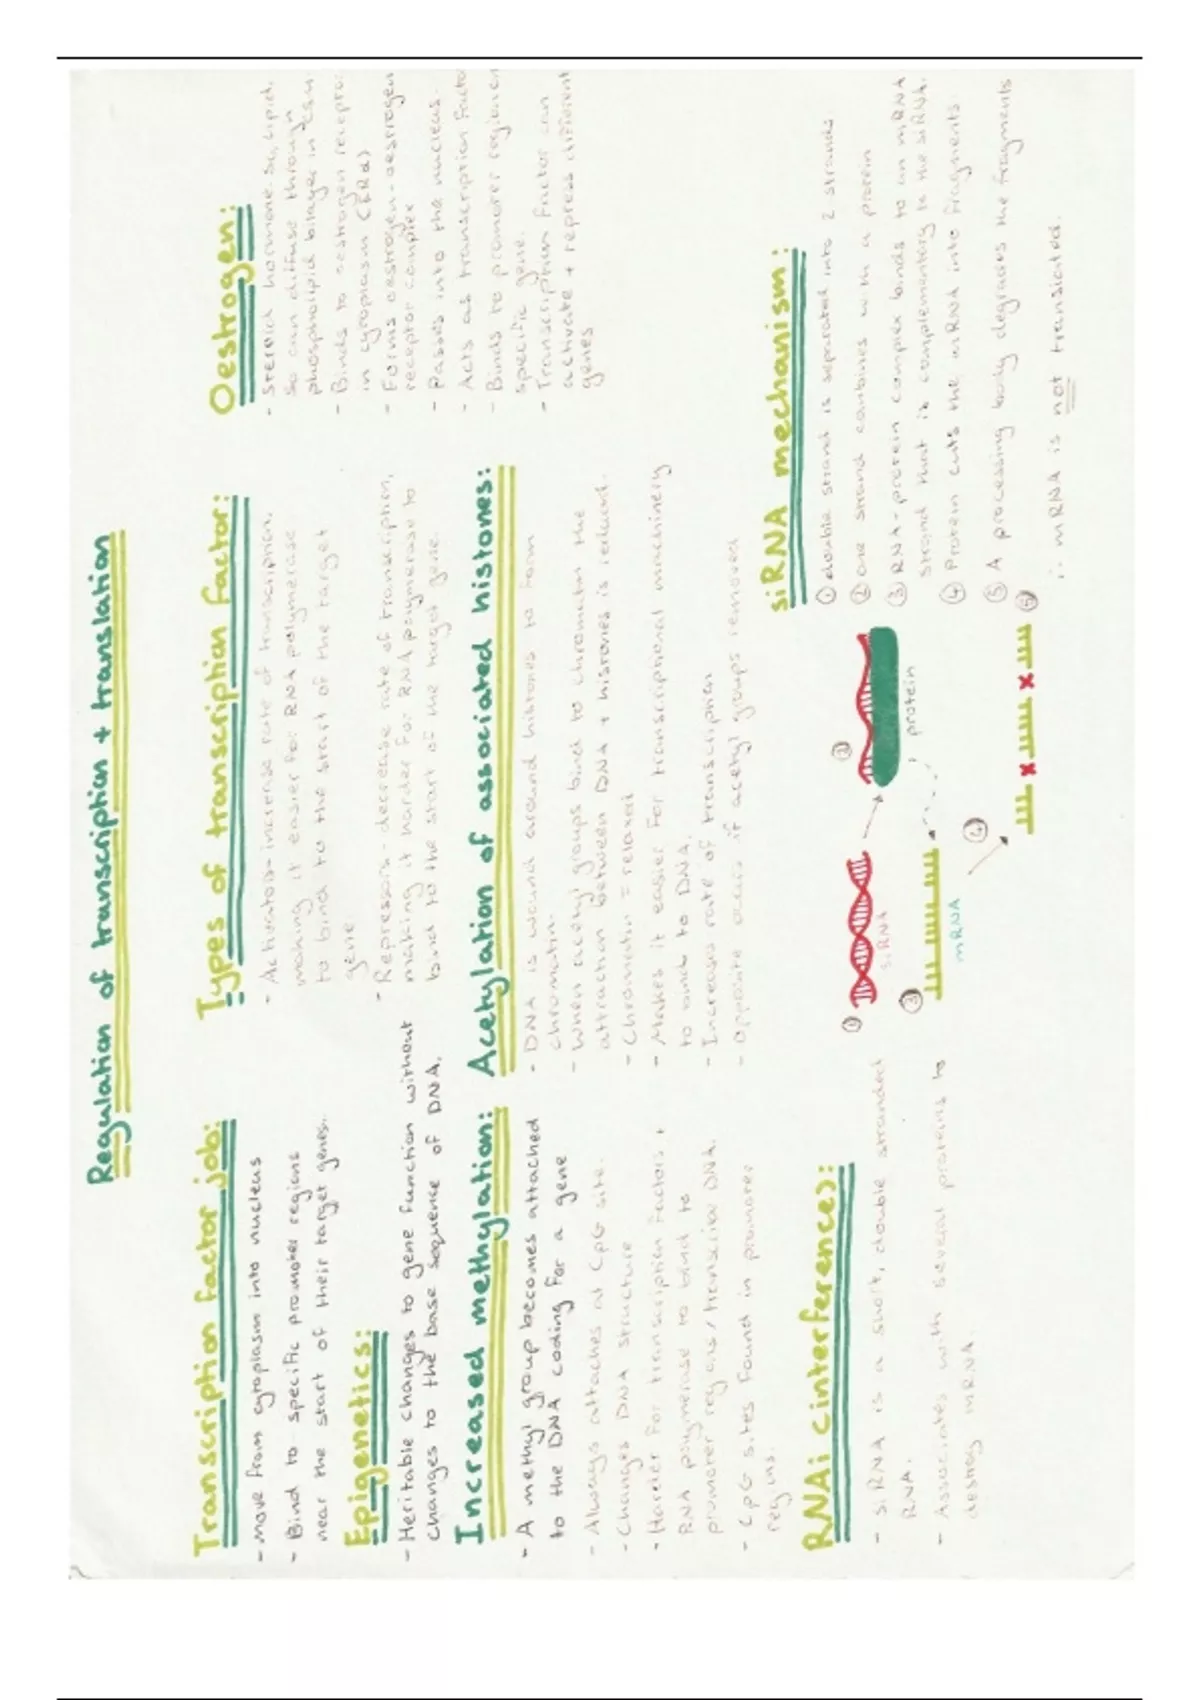 Regulation of transcription + translation
Transcription factor job:
- move from cytoplasm into nucleus
- Bind to specific promoter regions
near the start of their target genes.
Epigenetics:
- Heritable changes to gene function without
changes to the base sequence of DNA.
Increased methylation:
- A methyl group becomes attached
to the DNA coding for a gene
- Always attaches at CpG site.
- Changes DNA structure
- Harder for transcription factors +
RNA polymerase to bind to
promoter regions/transcribe DNA.
- CpG sites found in promoter
regions.
Types of transcription factor:
- Activators-increase rate of transcription,
making it easier for RNA polymerase
to bind to the start of the target
gene
- Repressors - decrease rate of transcription,
making it harder for RNA polymerase to
bind to the start of the target gene.
Acetylation of associated histones:
- DNA is wound around histones to form
chromatin.
- When acetyl groups bind to chromatin the
attraction between DNA + histones is reduced.
- Chromatin = relaxed
- Makes it easier for transcriptional machinery
to bind to DNA.
- Increases rate of transcription
- opposite occurs if acetyl groups removed
Oestrogen:
- Steroid hormone. So, lipid.
So can diffuse through
phospholipid bilayer in
- Binds to oestrogen
in cytoplasm (ERα)
- Forms oestrogen-oestrogen
receptor complex
- Passes into the nucleus.
- Acts as transcription
- Binds to promoter region
specific gene.
- Transcription factor can
activate + repress different
genes
RNAi (interference):
- siRNA is a short, double stranded
RNA.
- Associates with several proteins to
destroy mRNA.
① siRNA
② protein
③ mRNA
④
⑤
siRNA mechanism:
① double strand is separated into 2 strands
② one strand combines with a protein
③ RNA-protein complex binds to an mRNA
strand that is complementary to the siRNA.
④ Protein cuts the mRNA into fragments
⑤ A processing body degrades the fragments
∴ mRNA is not translated.